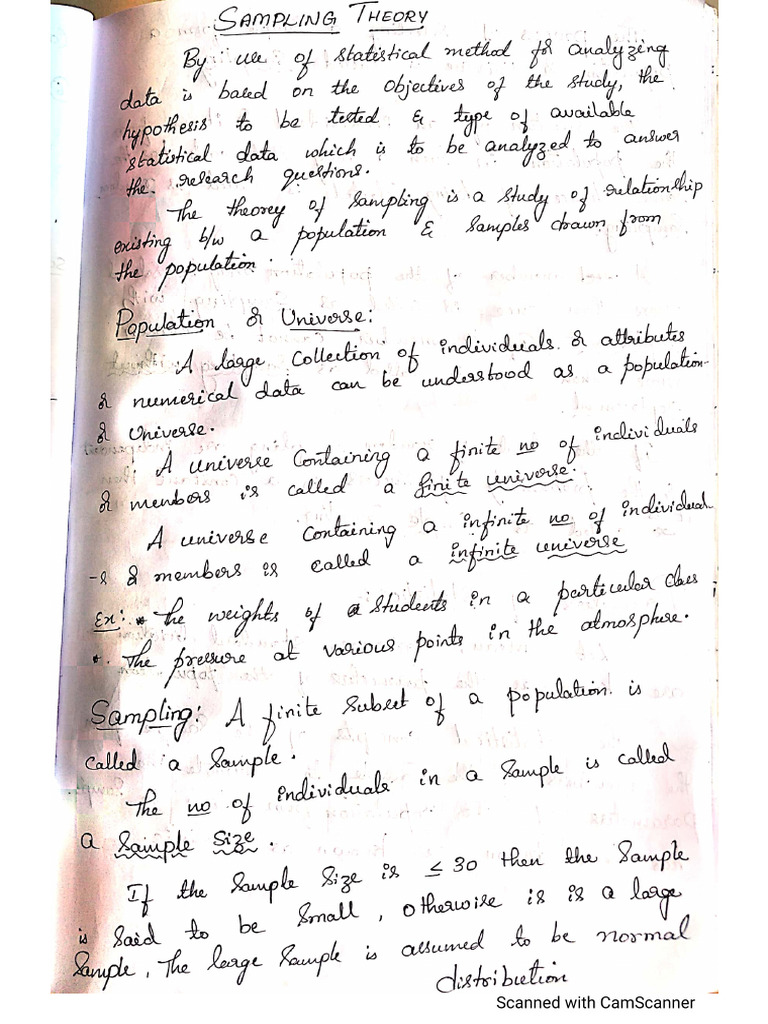 SAMPLING THEORY
By use of statistical method for analyzing
data is based on the objectives of the study, the
hypothesis to be tested & type of available
statistical data which is to be analyzed to answer
the research questions.
The theorey of sampling is a study of relationship
existing b/w a population & samples drawn from
the population.
Population or Universe:
A large collection of individuals or attributes
or numerical data can be understood as a population
or universe.
A universe containing a finite no of individuals
or members is called a finite universe.
A universe containing a infinite no of individual
-s or members is called a infinite universe
Ex: * The weights of students in a particular class
* The pressure at various points in the atmosphere.
Sampling: A finite subset of a population is
called a sample.
The no of individuals in a sample is called
a sample size.
If the sample size is ≤ 30 then the sample
is said to be small, otherwise is is a large
sample, The large sample is assumed to be normal
distribution
Scanned with CamScanner